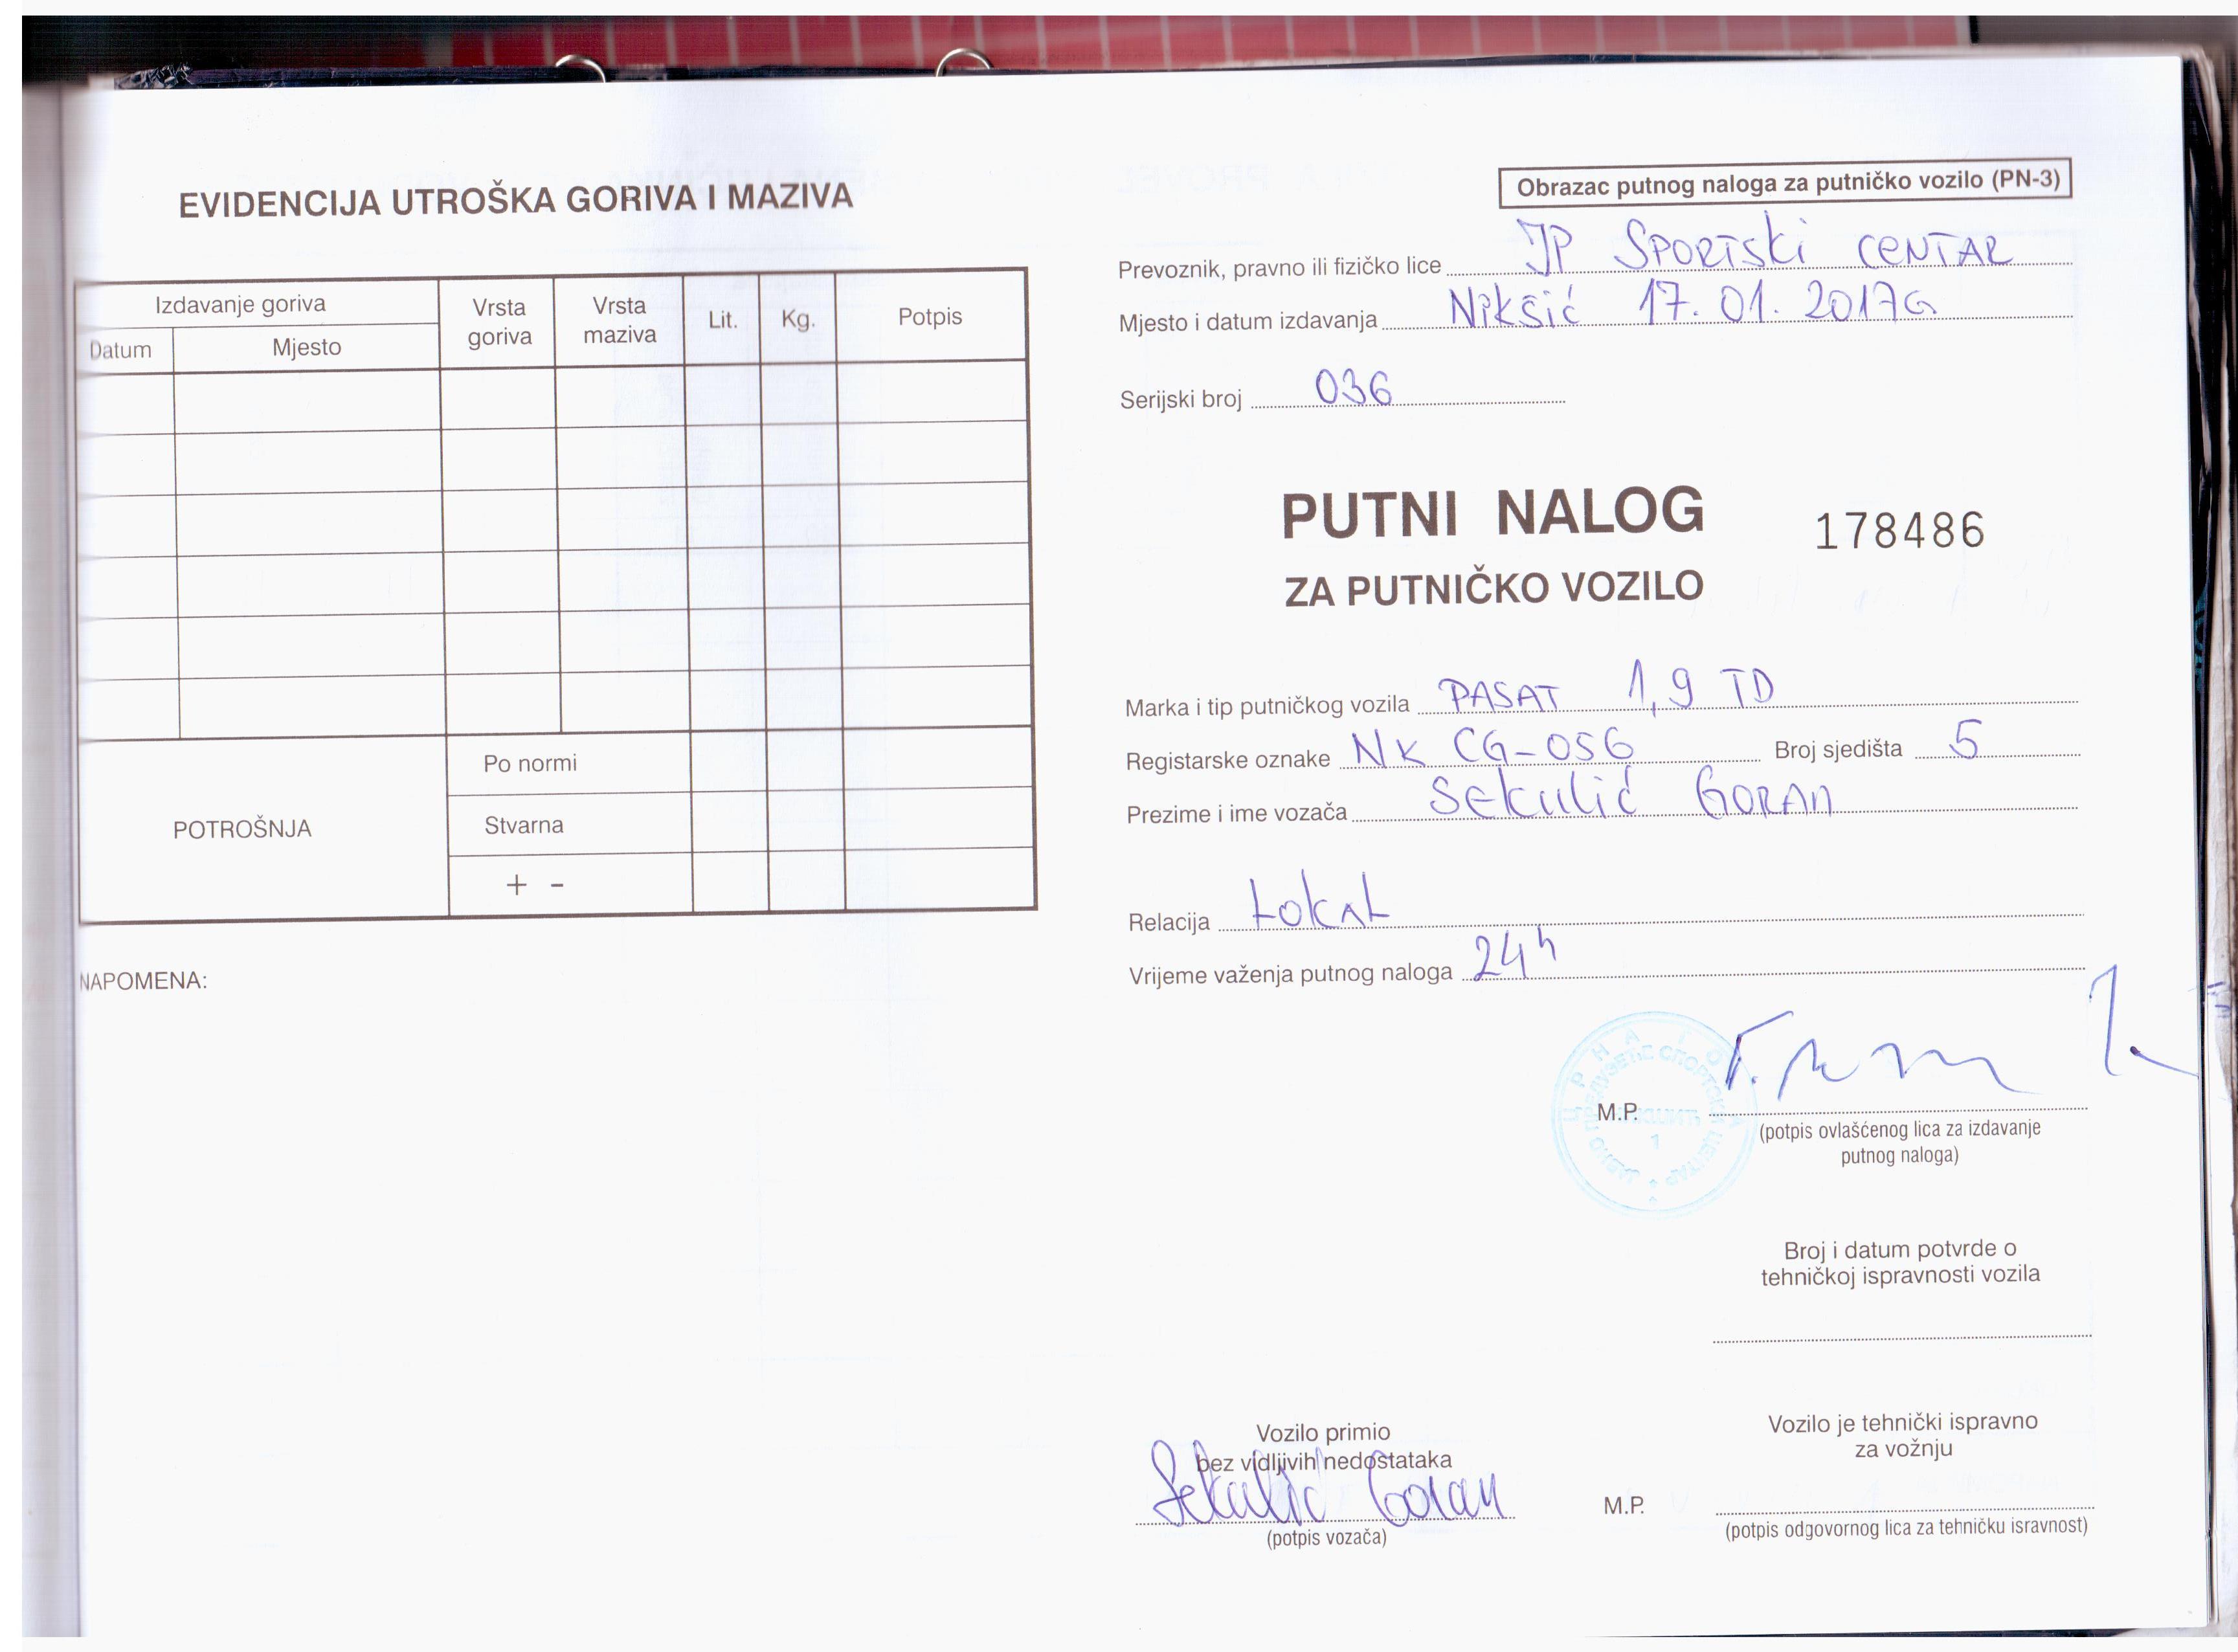 EVIDENCIJA UTROŠKA GORIVA I MAZIVA
Izdavanje goriva
Datum
Mjesto
Vrsta goriva
Vrsta maziva
Lit.
Kg.
Potpis
POTROŠNJA
Po normi
Stvarna
+ -
NAPOMENA:
Obrazac putnog naloga za putničko vozilo (PN-3)
Prevoznik, pravno ili fizičko lice JP SPORTSki CENTAR
Mjesto i datum izdavanja Nikšić 17.01.2017G
Serijski broj 036
PUTNI NALOG
178486
ZA PUTNIČKO VOZILO
Marka i tip putničkog vozila PASAT 1,9 TD
Registarske oznake NK CG-056 Broj sjedišta 5
Prezime i ime vozača Sekulić GORAN
Relacija LOKAL
Vrijeme važenja putnog naloga 24h
M.P.
(potpis ovlašćenog lica za izdavanje
putnog naloga)
Broj i datum potvrde o
tehničkoj ispravnosti vozila
Vozilo primio
bez vidljivih nedostataka
Sekulić Goran
(potpis vozača)
Vozilo je tehnički ispravno
za vožnju
M.P.
(potpis odgovornog lica za tehničku isravnost)